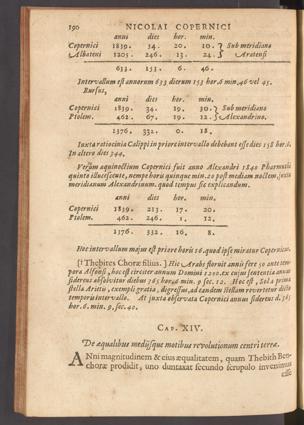 190 NICOLAI COPERNICI
anni dies hor. min.
Copernici 1839. 34. 20. 10. Sub meridiano
Albateni 1205. 246. 13. 24. Aratensi
633. 153. 6. 46.
Intervallum est annorum 633 dierum 153 hor. 6 min. 46 vel 45.
Rursus,
anni dies hor. min.
Copernici 1839. 34. 19. 30. Sub meridiano
Ptolem. 462. 67. 19. 12. Alexandrino.
1376. 332. 0. 18.
Juxta rationcinia Calippi in priore intervallo debebant esse dies 158 hor. 6.
In altero dies 344.
Verùm aquinoctium Copernici fuit anno Alexandri 1840 Pharmuthi
quinto illucescente, nempe horis quinque min. 20 post mediam noctem, juxta
meridianum Alexandrinum. quod tempus sic explicandum.
anni dies hor. min.
Copernici 1839. 213. 17. 20.
Ptolem. 462. 246. 1. 12.
1376. 332. 16. 8.
Hoc intervallum majus est priore horis 16. quod ipse miratur Copernicus.
[† Thebites Choræ filius.] Hic Arabs floruit annis ferè 50 ante tem-
pora Alfonsi, hoc est circiter annum Domini 1200. Ex cujus sententia annus
sidereus absolvitur diebus 365 hor. 6 min. 9 sec. 12. Hoc est, Sol à prima
stella Arietis, exempli gratia, digressus, ad eandem stellam revertetur dicto
temporis intervallo. At juxta observata Copernici annus sidereus d. 365
hor. 6. min. 9. sec. 40.
CAP. XIV.
De æqualibus mediisque motibus revolutionum centri terræ.
ANni magnitudinem & eius æqualitatem, quam Thebith Ben-
choræ prodidit, uno duntaxat secundo scrupulo invenimus
esse